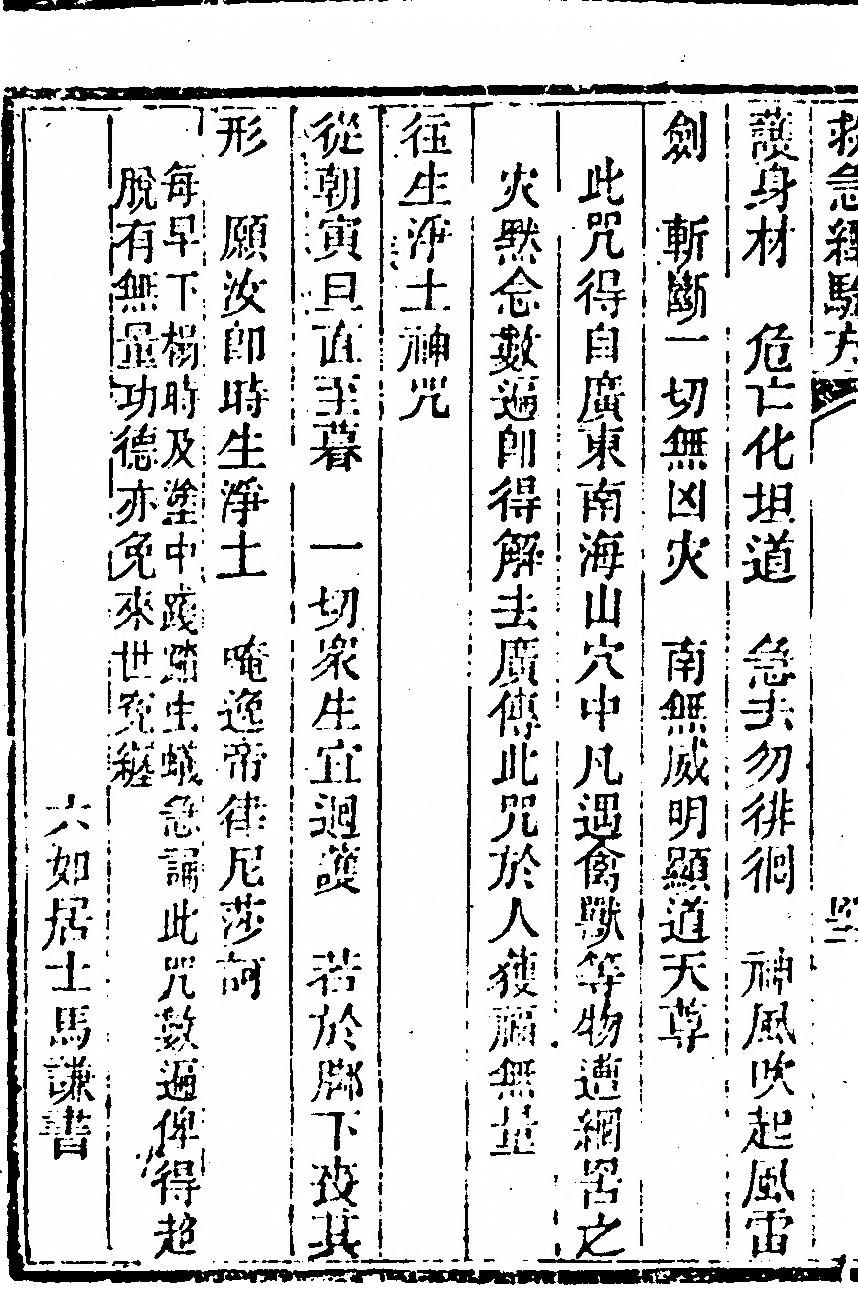 救急經驗方
護身材　危亡化坦道　急去勿徘徊　神風吹起風雷
劍　斬斷一切無凶灾　南無威明顯道天尊
此咒得自廣東南海山穴中凡遇禽獸等物遭網罟之
灾默念數遍即得解去廣傳此咒於人獲福無量
往生淨土神咒
從朝寅旦直至暮　一切衆生宜迴護　若於脚下喪其
形　願汝即時生淨土　唵逸帝律尼莎訶
每早下榻時及塗中踐踏虫蟻急誦此咒數遍俾得超
脫有無量功德亦免來世寃纏
六如居士馬謙書